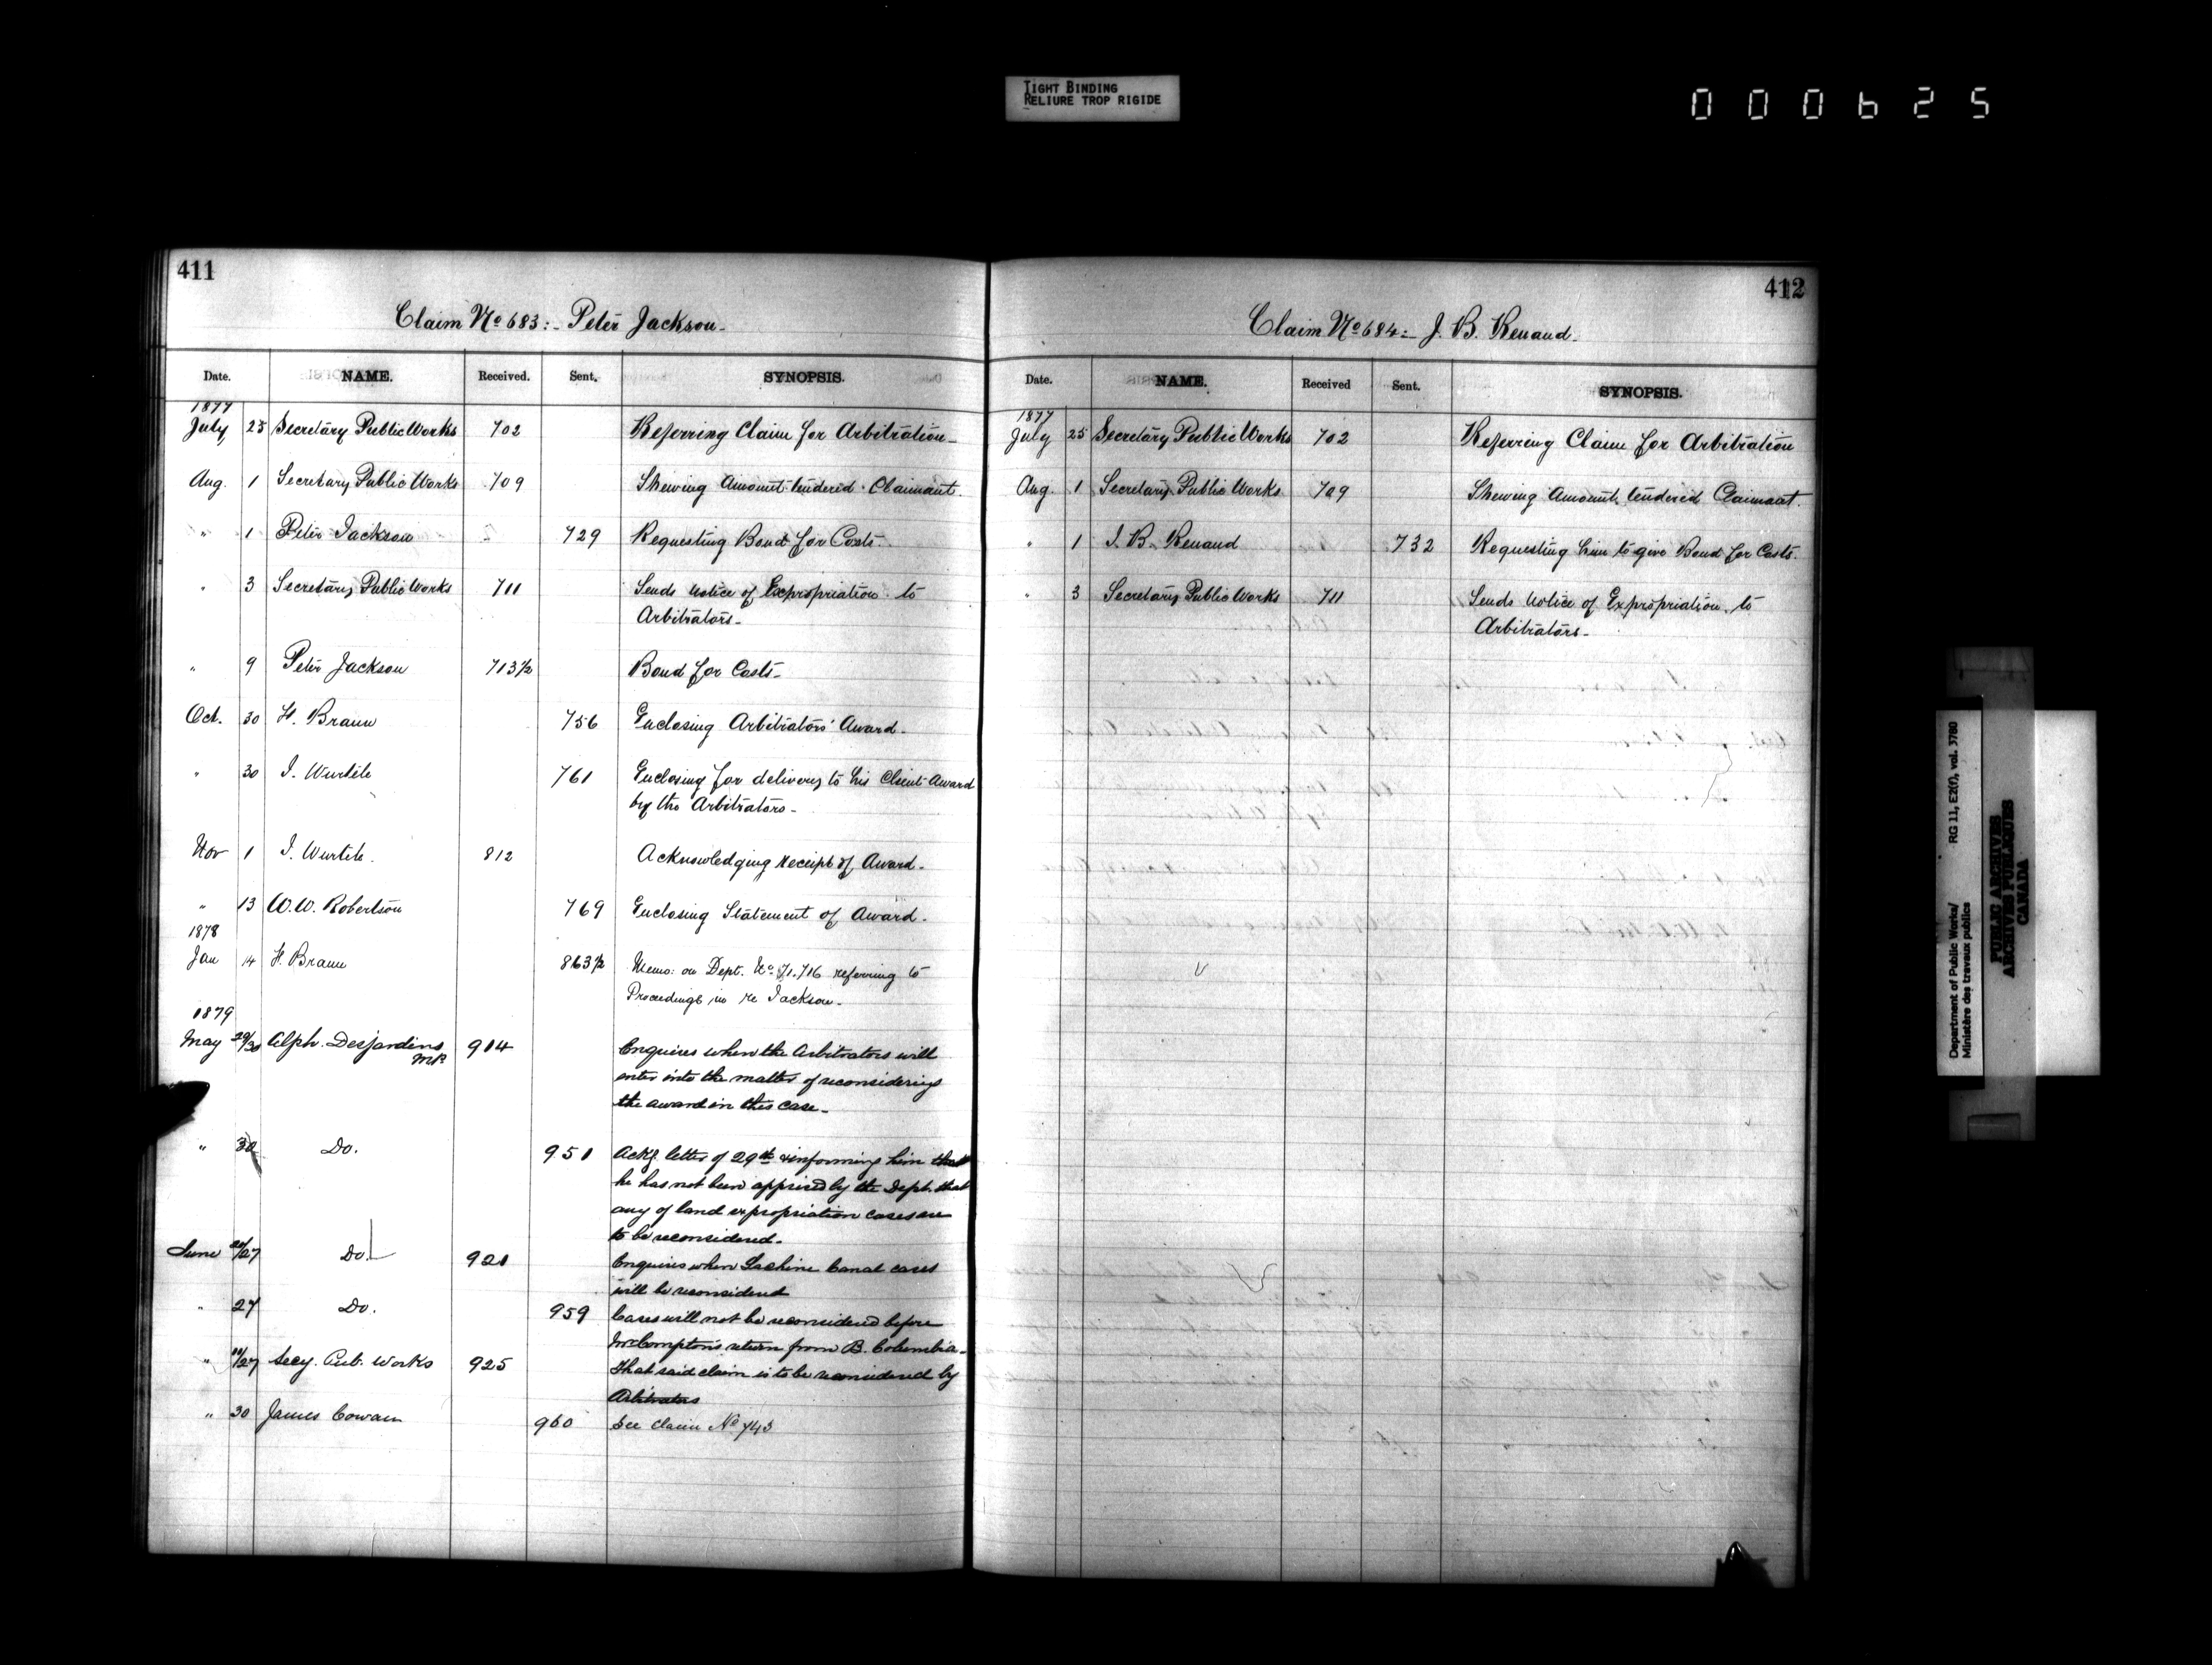 TIGHT BINDING
RELIURE TROP RIGIDE
000625
411
Claim No 683:- Peter Jackson-
Date. NAME. Received. Sent. SYNOPSIS.
1877
July 25 Secretary Public Works 702 Referring Claim for Arbitration-
Aug. 1 Secretary Public Works 709 Shewing Amount tendered Claimant.
" 1 Peter Jackson 729 Requesting Bond for Costs-
" 3 Secretary Public Works 711 Sends notice of Expropriation to
Arbitrators-
" 9 Peter Jackson 713½ Bond for Costs-
Oct. 30 F. Braun 756 Enclosing Arbitrators' Award-
" 30 J. Wurtele 761 Enclosing for delivery to his Client Award
by the Arbitrators-
Nov 1 J. Wurtele. 812 Acknowledging receipt of Award-
" 13 W.W. Robertson 769 Enclosing Statement of Award-
1878
Jan 14 F. Braun 863½ Memo: on Dept. No 71.716 referring to
Proceedings in re Jackson-
1879
May 29/30 Alph. Desjardins 904 Enquires when the Arbitrators will
MP. enter into the matter of reconsidering
the award in this case-
" 30 Do. 951 Ackg. letter of 29th & informing him that
he has not been apprised by the Dept. that
any of land expropriation cases are
to be reconsidered-
June 27 Do. 921 Enquires when Lachine Canal cases
will be reconsidered
" 27 Do. 959 Cases will not be reconsidered before
Mr Compton's return from B. Columbia-
" 27 Secy. Pub. Works 925 That said claim is to be reconsidered by
Arbitrators
" 30 James Cowan 960 See claim No 743
412
Claim No 684:- J. B. Renaud-
Date. NAME. Received Sent. SYNOPSIS.
1877
July 25 Secretary Public Works 702 Referring Claim for Arbitration
Aug. 1 Secretary Public Works 709 Shewing Amount tendered Claimant.
" 1 J. B. Renaud 732 Requesting him to give Bond for Costs.
" 3 Secretary Public Works 711 Sends notice of Expropriation to
Arbitrators-
Department of Public Works/ RG 11, E2(f), vol. 3780
Ministère des travaux publics
PUBLIC ARCHIVES
ARCHIVES PUBLIQUES
CANADA